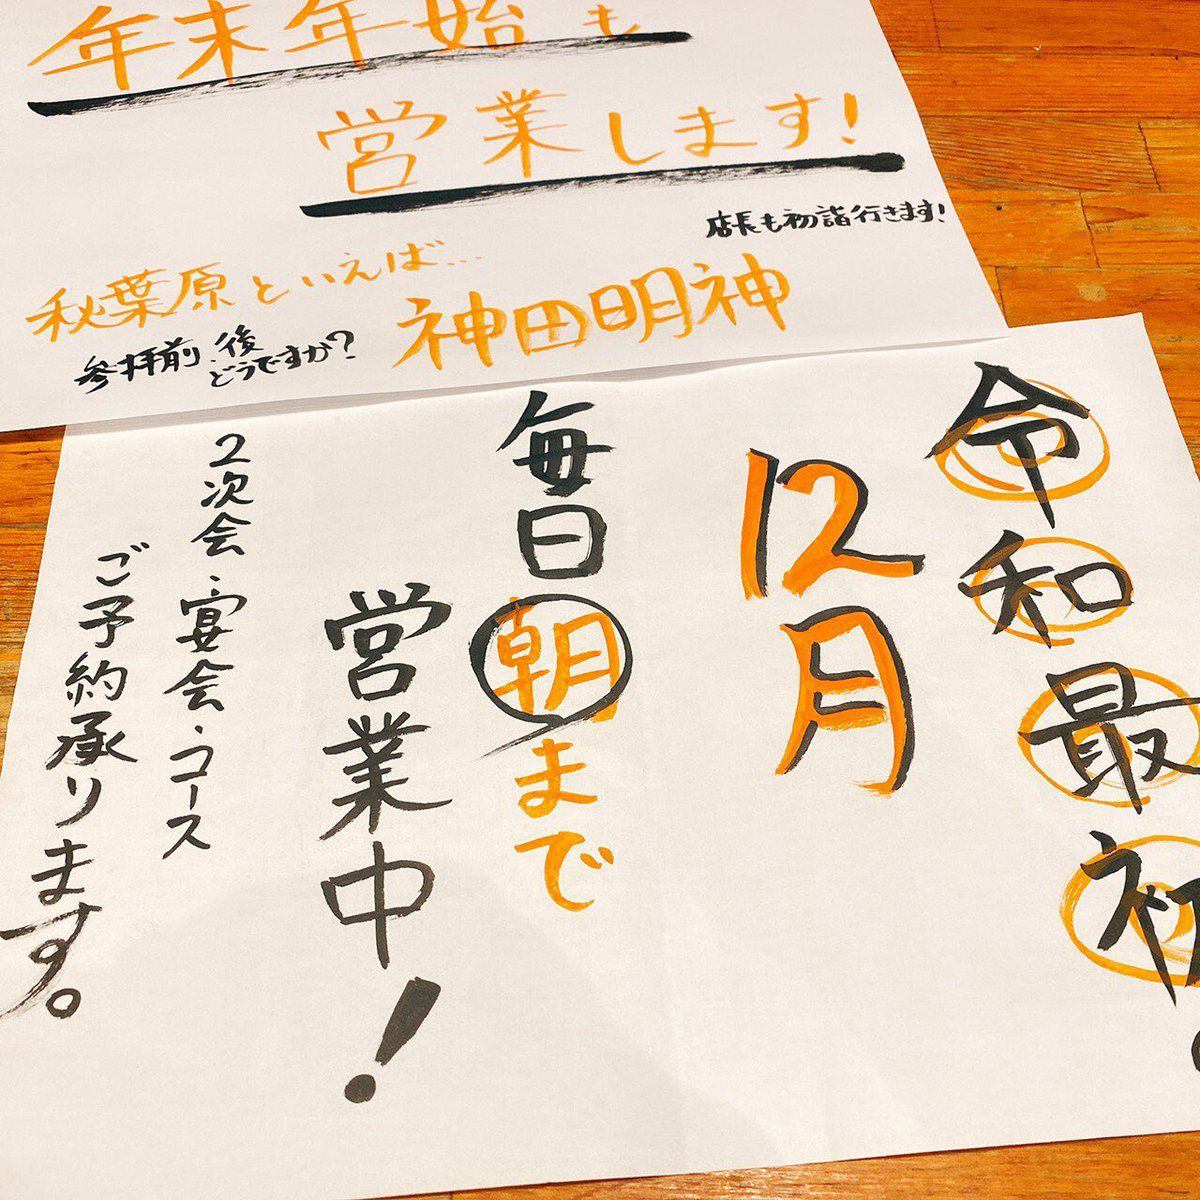 年末年始も
営業します!
店長も初詣行きます!
秋葉原といえば…
神田明神
参拝前・後
どうですか?
令和最初!
12月
毎日朝まで
営業中!
2次会・宴会・コース
ご予約承ります。